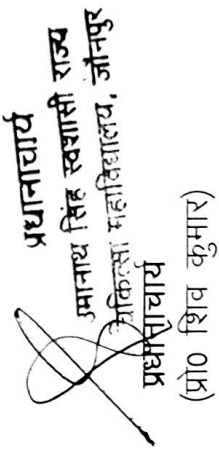 प्रधानाचार्य
उमानाथ सिंह स्वशासी राज्य
चिकित्सा महाविद्यालय, जौनपुर
प्रधानाचार्य
(प्रो० शिव कुमार)